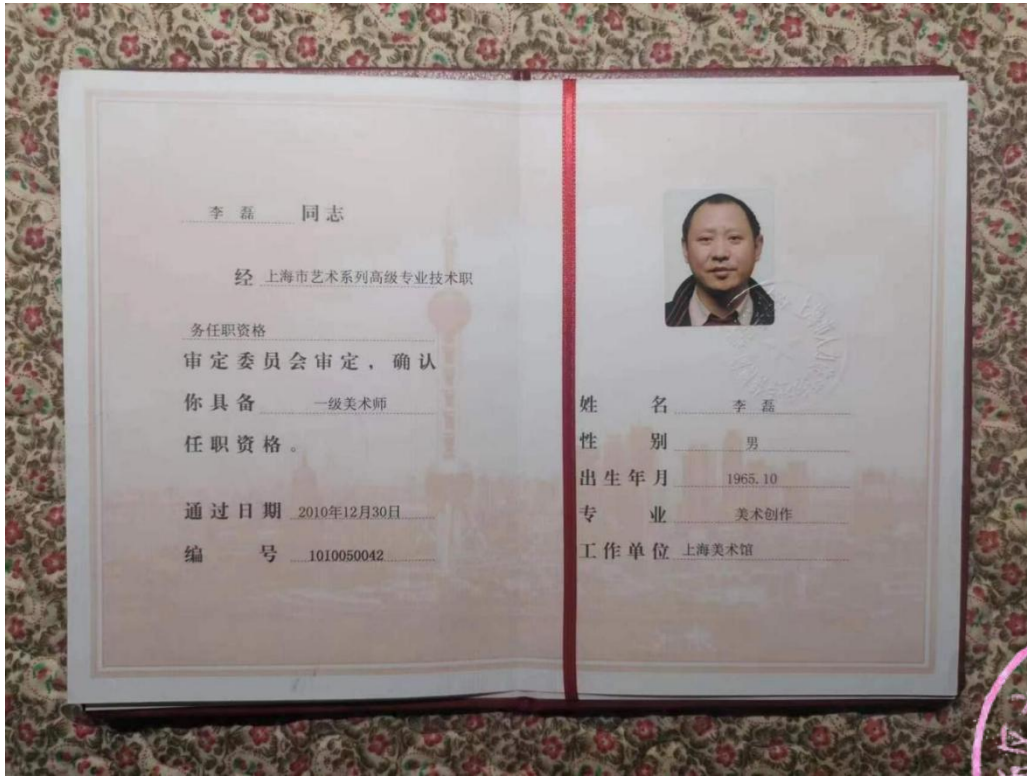 李 磊 同志
经 上海市艺术系列高级专业技术职
务任职资格
审定委员会审定，确认
你具备 一级美术师
任职资格。
通过日期 2010年12月30日
编 号 1010050042
姓 名 李 磊
性 别 男
出生年月 1965.10
专 业 美术创作
工作单位 上海美术馆